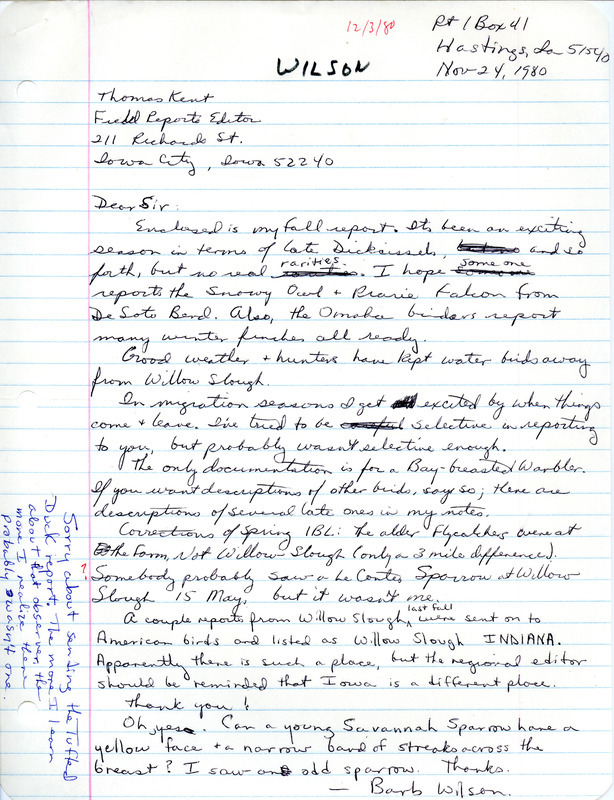 12/3/80
Rt 1 Box 41
Hastings, Ia 51540
Nov 24, 1980
WILSON
Thomas Kent
Field Reports Editor
211 Richards St.
Iowa City, Iowa 52240
Dear Sir:
Enclosed is my fall report. Its been an exciting
season in terms of late Dickcissels, and so
forth, but no real rarities. I hope some one
reports the Snowy Owl + Prarie Falcon from
DeSoto Bend. Also, the Omaha birders report
many winter finches all ready.
Good weather + hunters have kept water birds away
from Willow Slough.
In migration seasons I get excited by when things
come + leave. I've tried to be selective in reporting
to you, but probably wasn't selective enough.
The only documentation is for a Bay-breasted Warbler.
If you want descriptions of other birds, say so; there are
descriptions of several late ones in my notes.
Corrections of Spring IBL: The alder Flycatchers were at
the Farm, Not Willow Slough (only a 3 mile difference).
? Somebody probably saw a Le Contes Sparrow at Willow
Slough 15 May, but it wasn't me.
A couple reports from Willow Slough last fall were sent on to
American birds and listed as Willow Slough INDIANA.
Apparently there is such a place, but the regional editor
should be reminded that Iowa is a different place.
Thank you!
Oh, yes. Can a young Savannah Sparrow have a
yellow face + a narrow band of streaks across the
breast? I saw an odd sparrow. Thanks.
— Barb Wilson.
Sorry about sending the Tufted
Duck report. The more I learn
about + observe the
more I realize there
probably wasn't one.